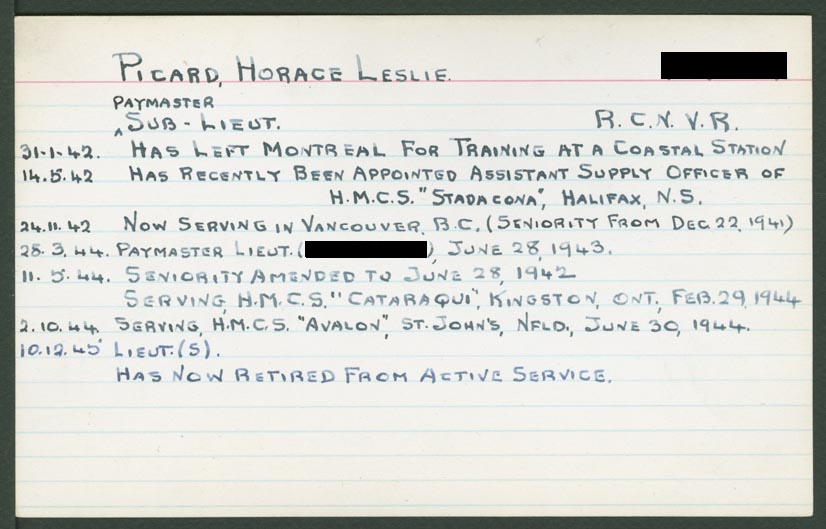 PICARD, HORACE LESLIE.
PAYMASTER
^SUB-LIEUT. R.C.N.V.R.
31-1-42. HAS LEFT MONTREAL FOR TRAINING AT A COASTAL STATION
14.5.42 HAS RECENTLY BEEN APPOINTED ASSISTANT SUPPLY OFFICER OF
H.M.C.S. "STADACONA", HALIFAX, N.S.
24.11.42 NOW SERVING IN VANCOUVER, B.C. (SENIORITY FROM DEC. 22, 1941)
28.3.44. PAYMASTER LIEUT. ( ), JUNE 28, 1943.
11.5.44. SENIORITY AMENDED TO JUNE 28, 1942
SERVING, H.M.C.S. "CATARAQUI", KINGSTON, ONT., FEB. 29, 1944
2.10.44. SERVING, H.M.C.S. "AVALON", ST. JOHN'S, NFLD., JUNE 30, 1944.
10.12.45 LIEUT. (S).
HAS NOW RETIRED FROM ACTIVE SERVICE.